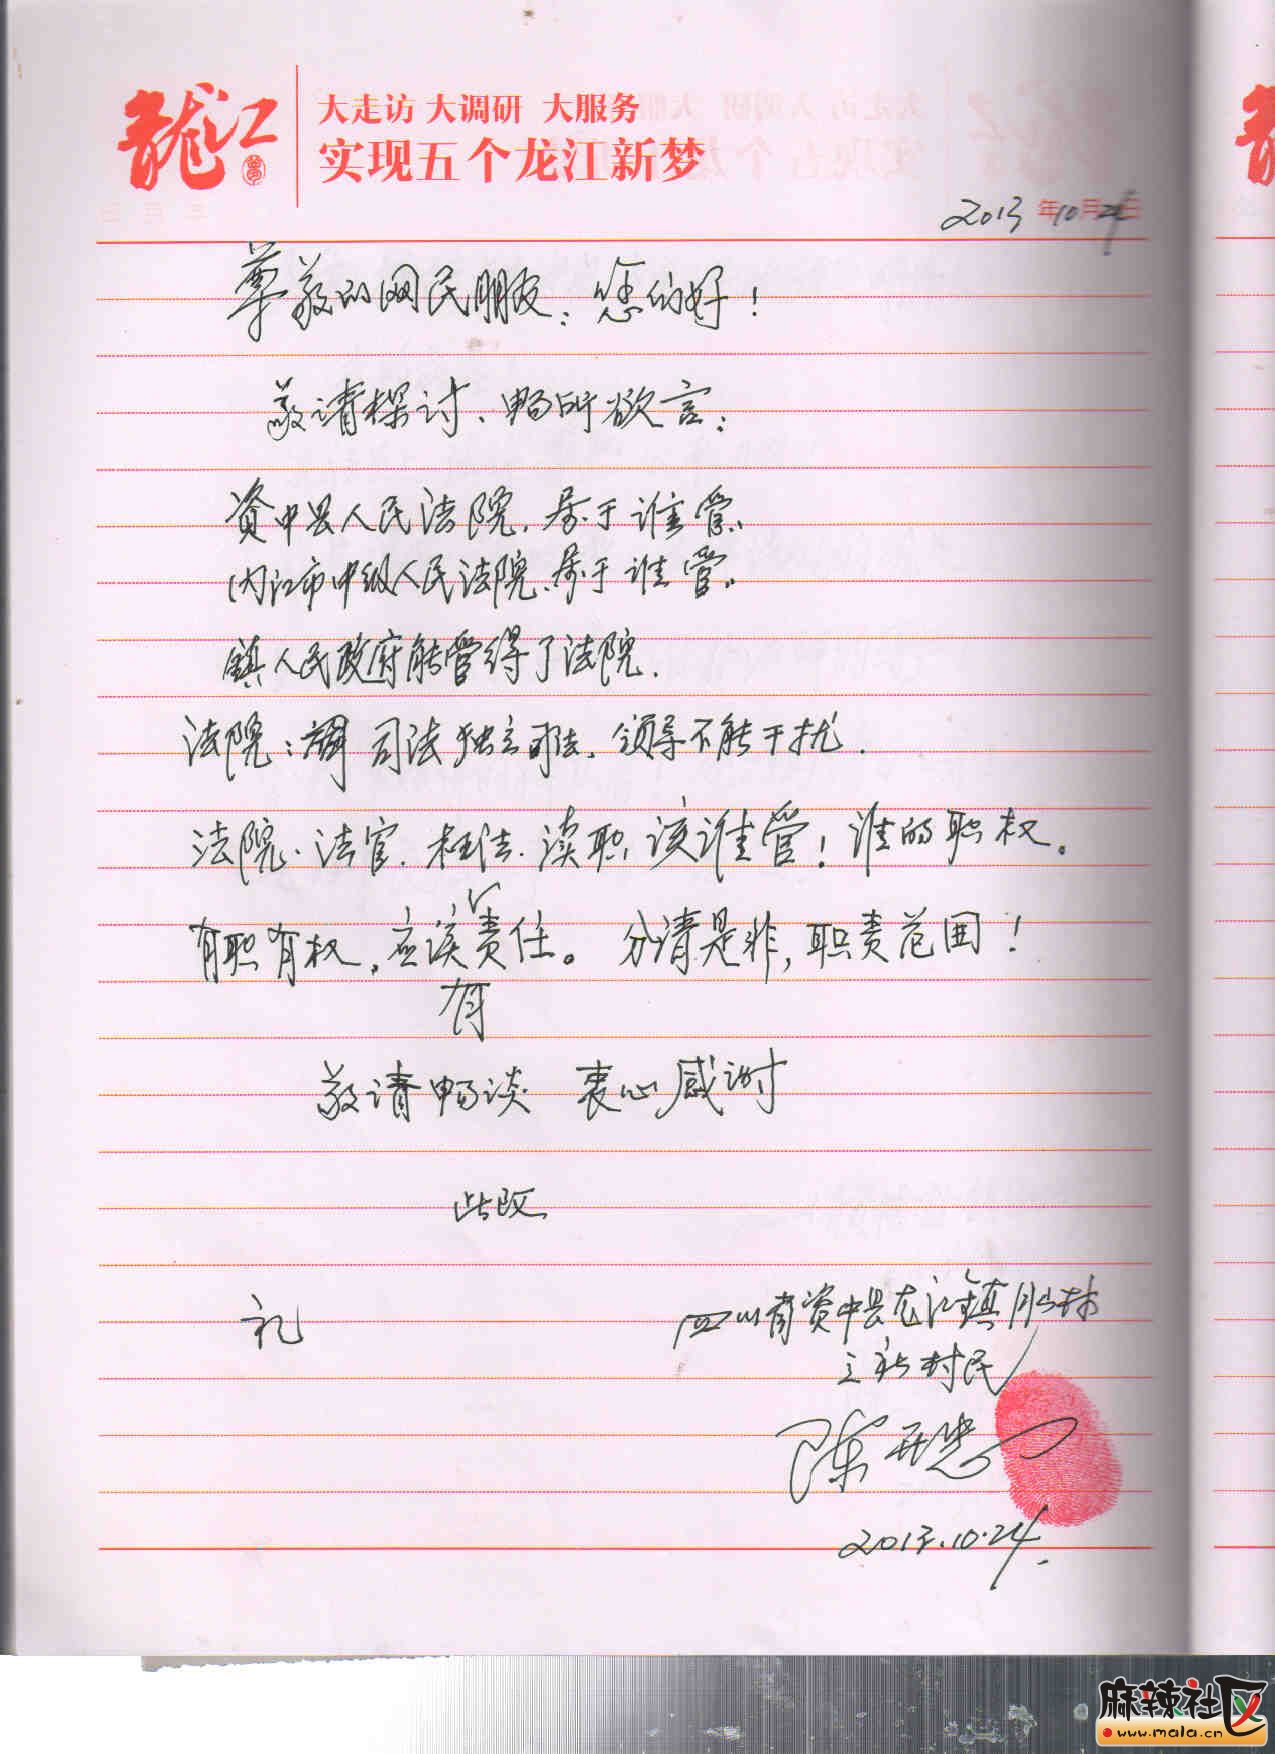 龍江
大走访 大调研 大服务
实现五个龙江新梦
2013年10月24日
尊敬的网民朋友：您们好！
敬请探讨、畅所欲言：
资中县人民法院，属于谁管、
内江市中级人民法院、属于谁管。
镇人民政府能管得了法院．
法院：谓 司法独立司法．领导不能干扰．
法院、法官．枉法．渎职，该谁管！谁的职权。
有职有权，应该有责任。分清是非，职责范围！
敬请畅谈 衷心感谢
此致
礼
四川省资中县龙江镇 村
社村民
陈开
2013.10.24.
麻辣社区
www.mala.cn